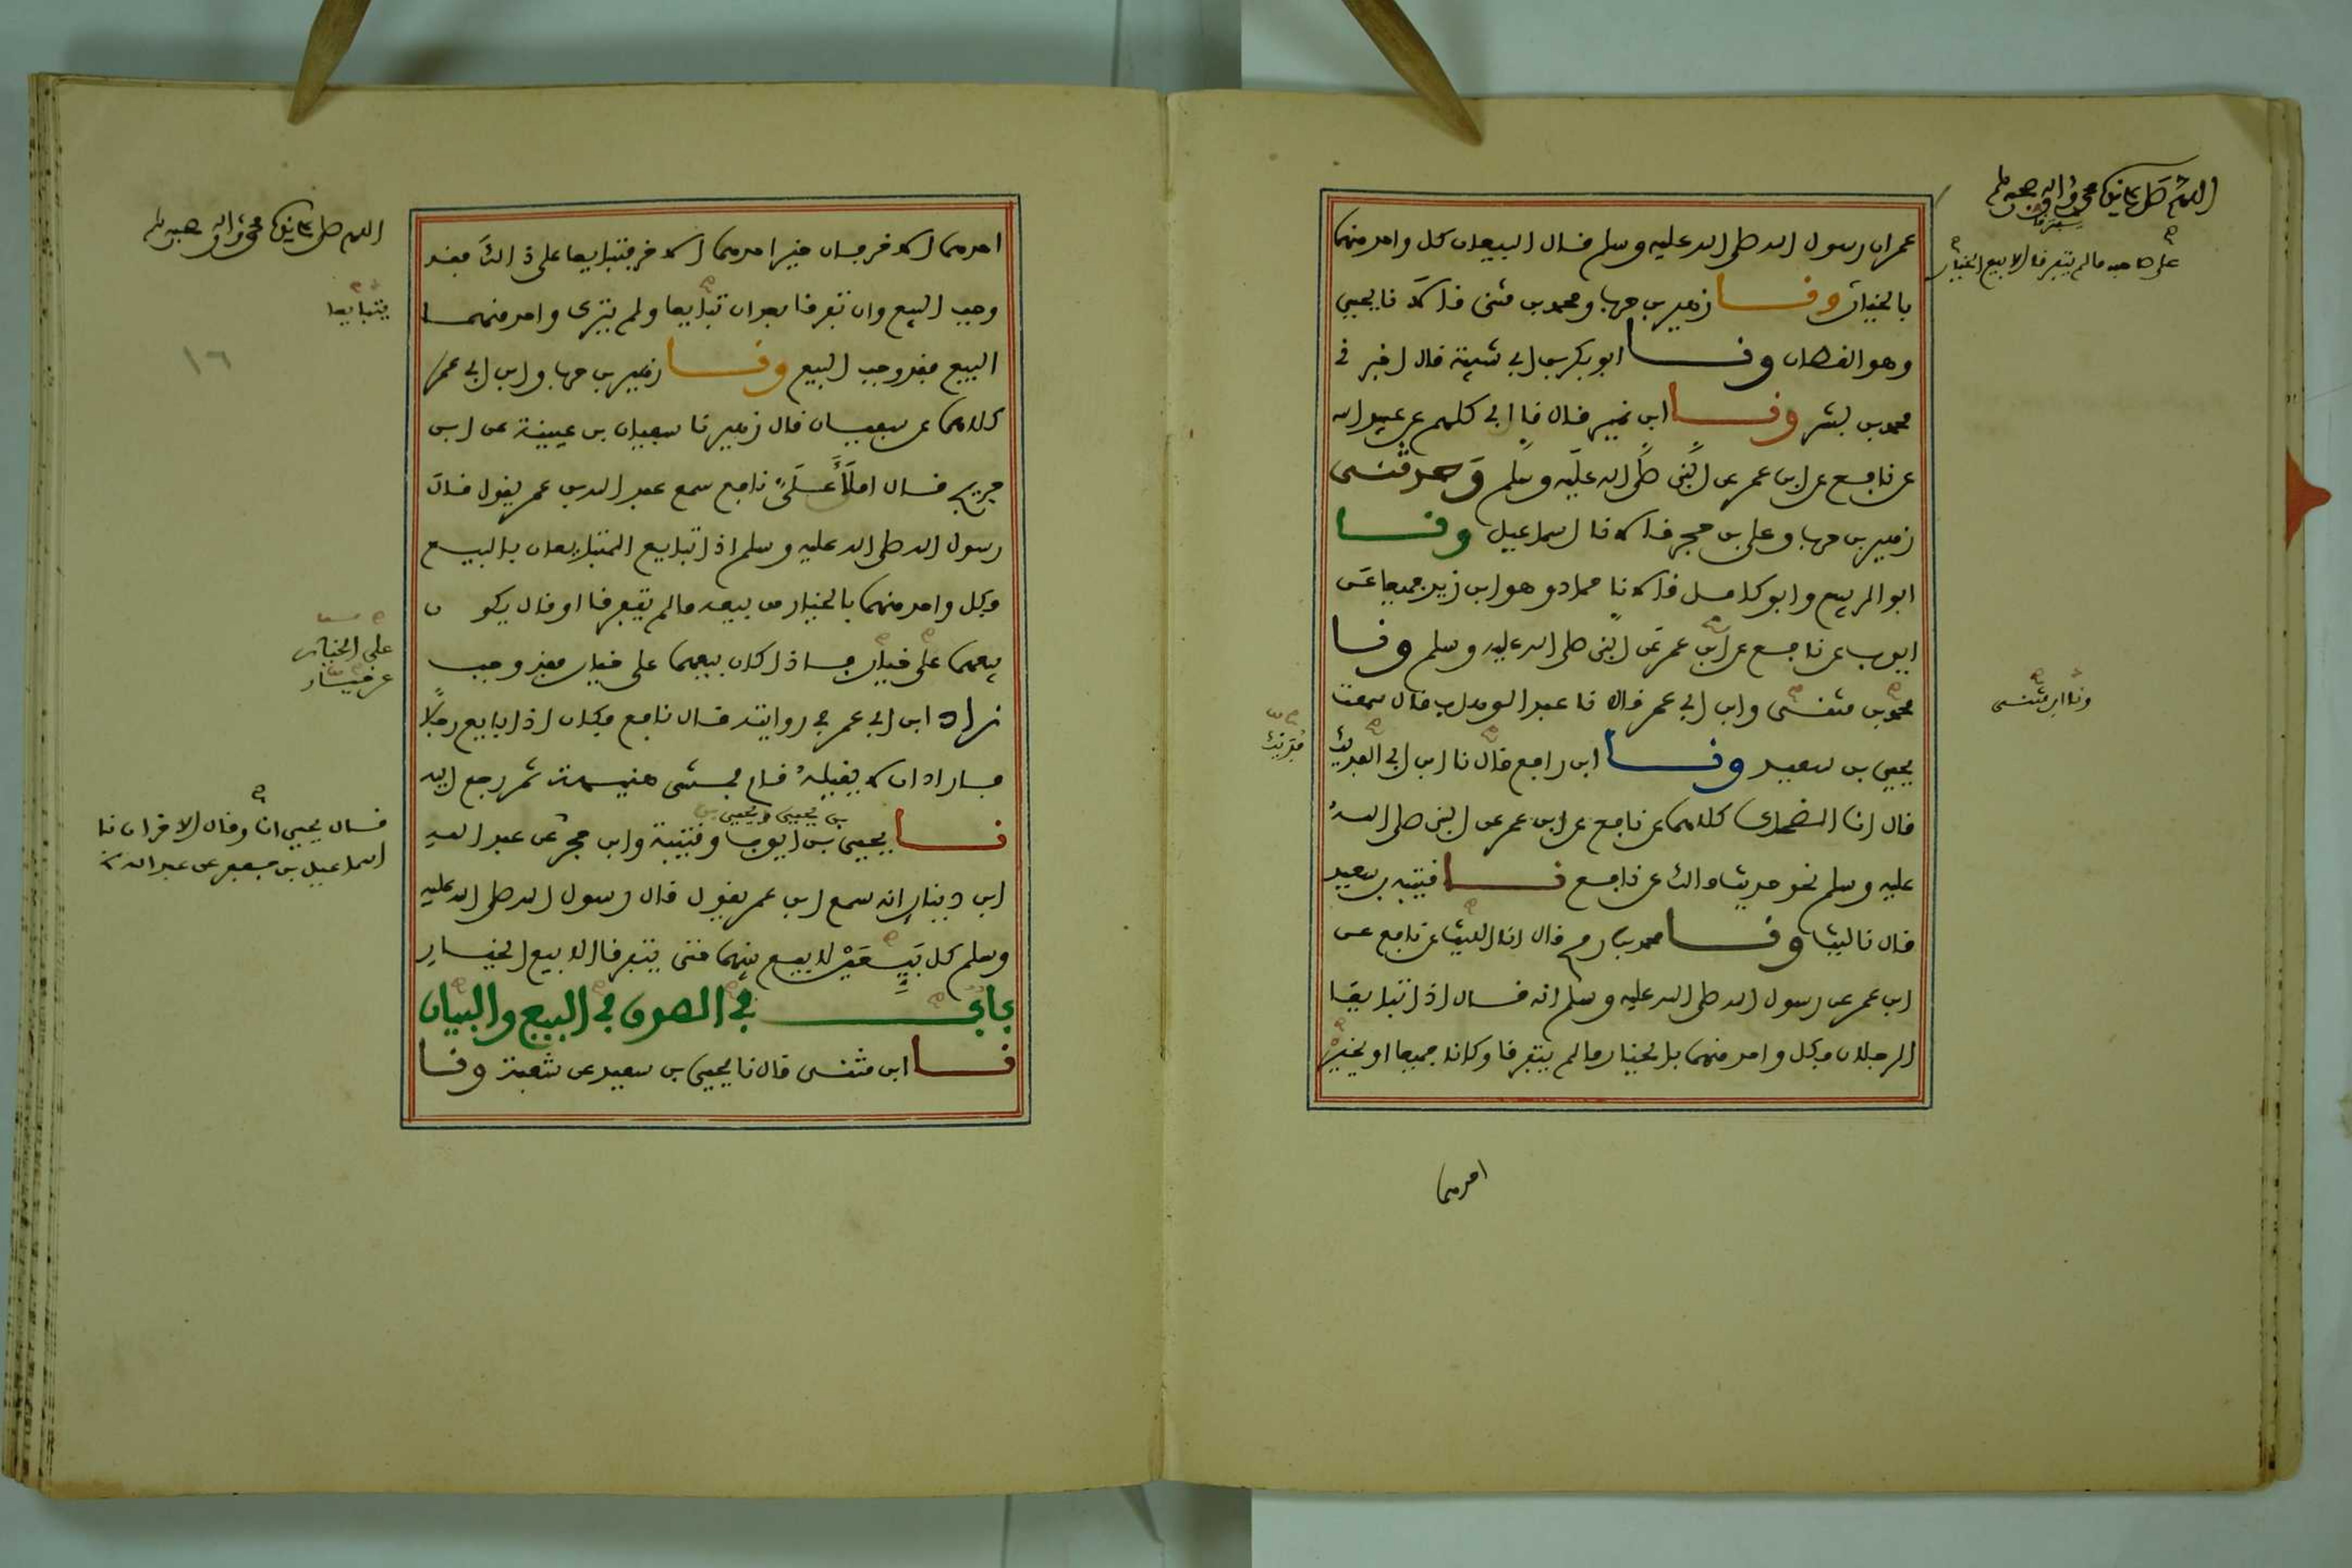 اللهم صل على نبينا محمد واله وصحبه وسلم
عمر ان رسول الله صلى الله عليه وسلم قال البيعان كل واحد منهما
على صاحبه ما لم يتفرقا الا بيع الخيار
بالخيار ونا زهير بن حرب ومحمد بن مثنى قالا نا يحيى
وهو القطان ونا ابو بكر بن ابي شيبة قال اخبر نى
محمد بن بشر ونا ابن نمير قال نا ابي كلهم عن عبيد الله
عن نافع عن ابن عمر عن النبي صلى الله عليه وسلم وحدثنى
زهير بن حرب وعلي بن حجر قالا نا اسماعيل ونا
ابو الربيع وابو كامل قالا نا حماد وهو ابن زيد جميعا عن
ايوب عن نافع عن ابن عمر عن النبي صلى الله عليه وسلم ونا
محمد بن مثنى وابن ابي عمر قالا نا عبد الوهاب قال سمعت
ونا ابن مثنى
يحيى بن سعيد ونا ابن رافع قال نا ابن ابي الفديك
فديك
قال انا الضحاك كلاهما عن نافع عن ابن عمر عن النبي صلى الله
عليه وسلم نحو حديث مالك عن نافع نا قتيبه بن سعيد
قال نا ليث ونا محمد بن رمح قال انا الليث عن نافع عن
ابن عمر عن رسول الله صلى الله عليه وسلم انه قال اذا تبايعا
الرجلان فكل واحد منهما بالخيار ما لم يتفرقا وكانا جميعا او يخير
احدهما
اللهم صل على نبينا محمد واله وصحبه وسلم
احدهما الاخر فان خير احدهما الاخر فتبايعا على ذالك فقد
وجب البيع وان تفرقا بعد ان تبايعا ولم يترك واحد منهما
يتبايعا
البيع فقد وجب البيع ونا زهير بن حرب وابن ابي عمر
١٦
كلاهما عن سفيان قال زهير نا سفيان بن عيينة عن ابن
جريج قال املا علي نافع سمع عبد الله بن عمر يقول قال
رسول الله صلى الله عليه وسلم اذا تبايع المتبايعان بالبيع
فكل واحد منهما بالخيار من بيعه ما لم يتفرقا او قال يكون
بيعهما على خيار فاذا كان بيعهما على خيار فقد وجب
على الخيار
عن خيار
زاد ابن ابي عمر في روايته قال نافع فكان اذا بايع رجلا
فاراد ان لا يقيله قام فمشى هنيهة ثم رجع اليه
بن يحيى ويحيى بن
نا يحيى بن ايوب وقتيبة وابن حجر عن عبد الله
قال يحيى انا وقال الاخران نا
اسماعيل بن جعفر عن عبد الله
ابن دينار انه سمع ابن عمر يقول قال رسول الله صلى الله عليه
وسلم كل بيعين لا بيع بينهما حتى يتفرقا الا بيع الخيار
باب في الصدق في البيع والبيان
نا ابن مثنى قال نا يحيى بن سعيد عن شعبة ونا